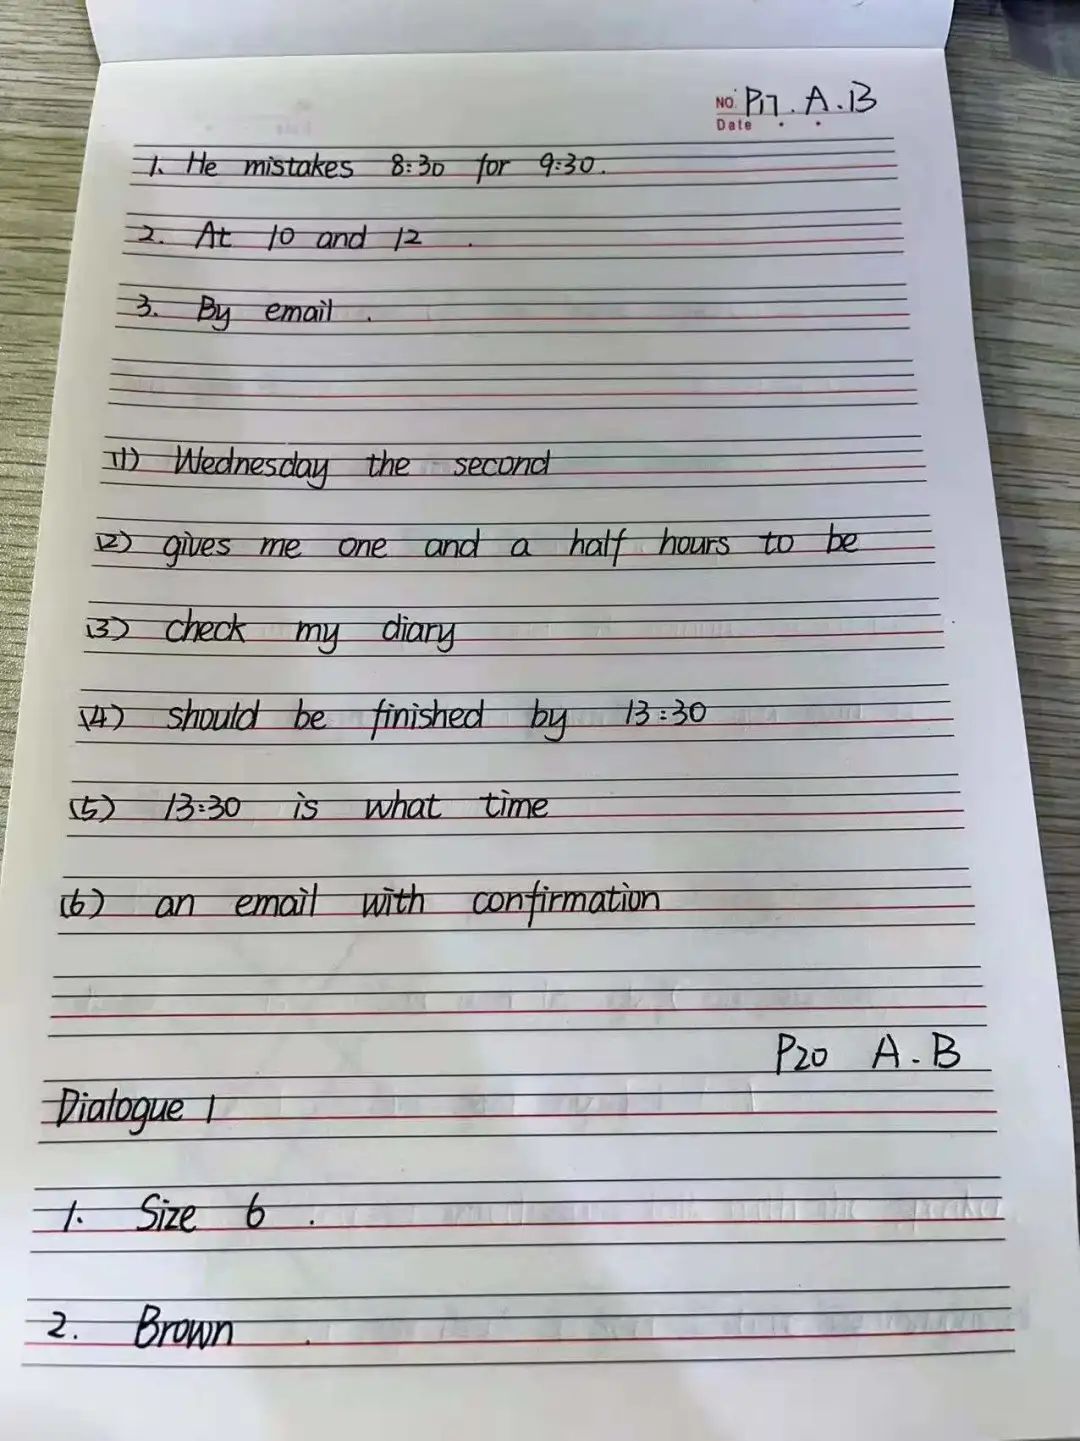 NO. P17. A.B
Date
1. He mistakes 8:30 for 9:30.
2. At 10 and 12.
3. By email.
(1) Wednesday the second
(2) gives me one and a half hours to be
(3) check my diary
(4) should be finished by 13:30
(5) 13:30 is what time
(6) an email with confirmation
P20 A.B
Dialogue 1
1. Size 6.
2. Brown.